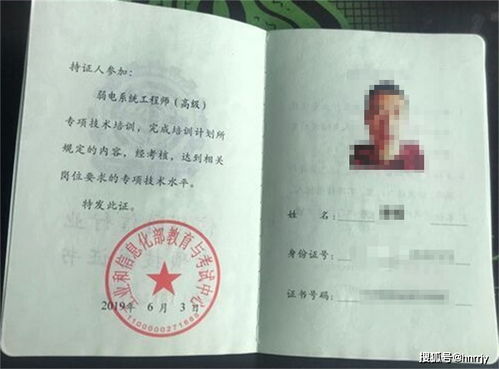 持证人参加：
弱电系统工程师（高级）
专项技术培训，完成培训计划所
规定的内容，经考核，达到相关
岗位要求的专项技术水平。
特发此证。
工业和信息化部教育与考试中心
2019年 6 月 3 日
姓 名：
身份证号：
证书号码：
搜狐号@hnrrjy